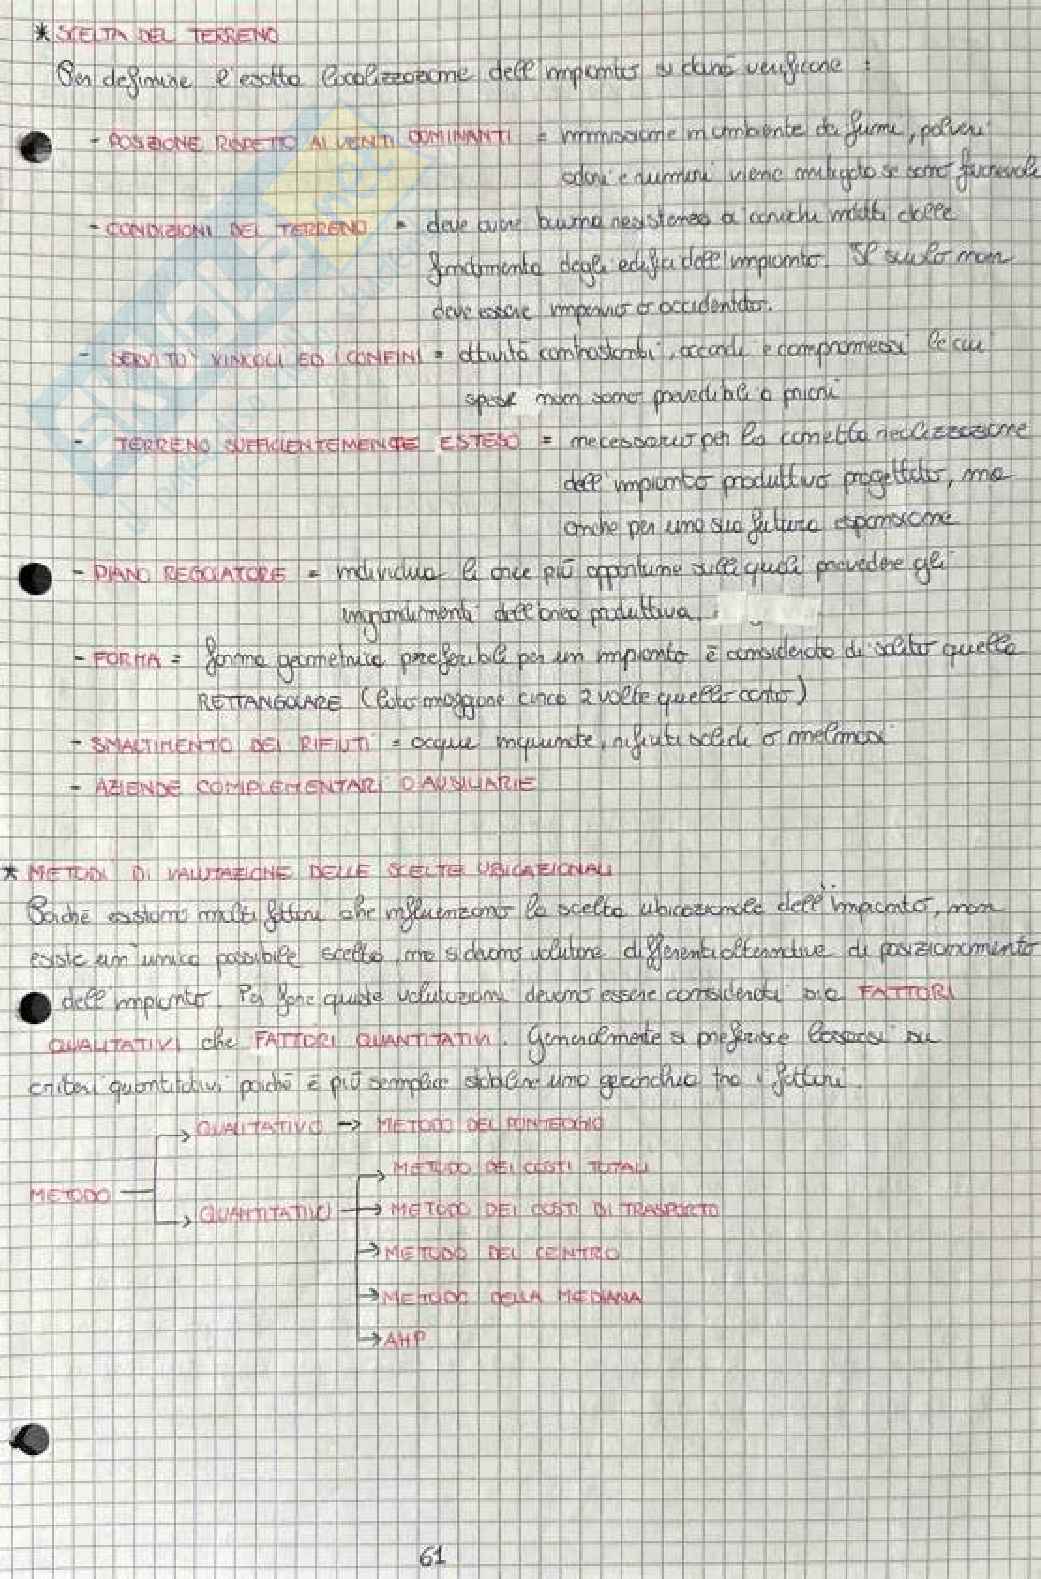 * SCELTA DEL TERRENO
Per definire l'esatta localizzazione dell'impianto si dovrà verificare :
- POSIZIONE RISPETTO AI VENTI DOMINANTI = immissione in ambiente di fumi, polveri
odori e rumori viene mitigato se sono favorevoli
- CONDIZIONI DEL TERRENO = deve avere buona resistenza a carichi indotti dalle
fondamenta degli edifici dell'impianto. Il suolo non
deve essere impervio o accidentato.
- SERVITÙ VINCOLI ED I CONFINI = attività contrastanti, accordi e compromessi le cui
spese non sono prevedibili a priori
- TERRENO SUFFICIENTEMENTE ESTESO = necessario per la corretta realizzazione
dell'impianto produttivo progettato, ma
anche per una sua futura espansione
- PIANO REGOLATORE = individua le aree più opportune sulle quali prevedere gli
ingrandimenti dell'area produttiva.
- FORMA = forma geometrica preferibile per un impianto è considerata di solito quella
RETTANGOLARE (lato maggiore circa 2 volte quello corto)
- SMALTIMENTO DEI RIFIUTI = acque inquinate, rifiuti solidi o melmosi
- AZIENDE COMPLEMENTARI O AUSILIARIE
* METODI DI VALUTAZIONE DELLE SCELTE UBICAZIONALI
Poichè esistono molti fattori che influenzano la scelta ubicazionale dell'impianto, non
esiste un'unica possibile scelta, ma si devono valutare differenti alternative di posizionamento
dell'impianto. Per fare queste valutazioni devono essere considerati sia FATTORI
QUALITATIVI che FATTORI QUANTITATIVI. Generalmente si preferisce basarsi su
criteri quantitativi poichè è più semplice stabilire una gerarchia tra i fattori.
QUALITATIVO → METODO DEL PUNTEGGIO
METODO DEI COSTI TOTALI
METODO
QUANTITATIVO → METODO DEI COSTI DI TRASPORTO
METODO DEL CENTRO
METODO DELLA MEDIANA
AHP
61